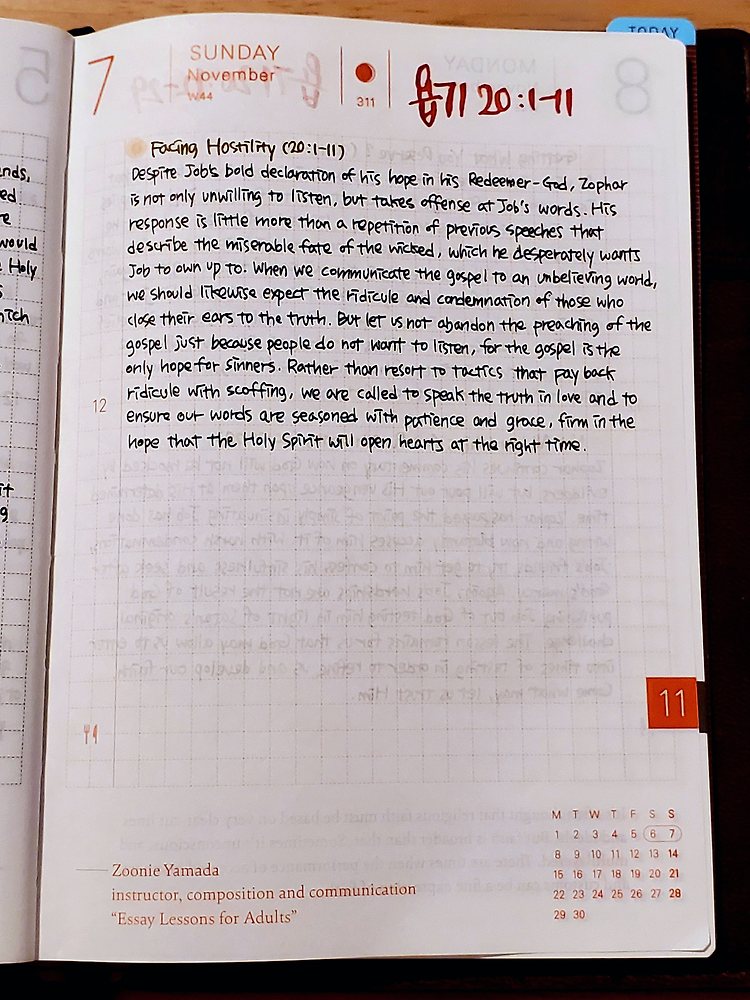 TODAY
7
SUNDAY
November
W44
311
욥기 20:1-11
Facing Hostility (20:1-11)
Despite Job's bold declaration of his hope in his Redeemer-God, Zophar
is not only unwilling to listen, but takes offense at Job's words. His
response is little more than a repetition of previous speeches that
describe the miserable fate of the wicked, which he desperately wants
Job to own up to. When we communicate the gospel to an unbelieving world,
we should likewise expect the ridicule and condemnation of those who
close their ears to the truth. But let us not abandon the preaching of the
gospel just because people do not want to listen, for the gospel is the
only hope for sinners. Rather than resort to tactics that pay back
ridicule with scoffing, we are called to speak the truth in love and to
12
ensure our words are seasoned with patience and grace, firm in the
hope that the Holy Spirit will open hearts at the right time.
11
M T W T F S S
1 2 3 4 5 6 7
8 9 10 11 12 13 14
15 16 17 18 19 20 21
22 23 24 25 26 27 28
29 30
Zoonie Yamada
instructor, composition and communication
"Essay Lessons for Adults"
5
nds,
ed
re
would
Holy
s
hich
it
g
8
MONDAY